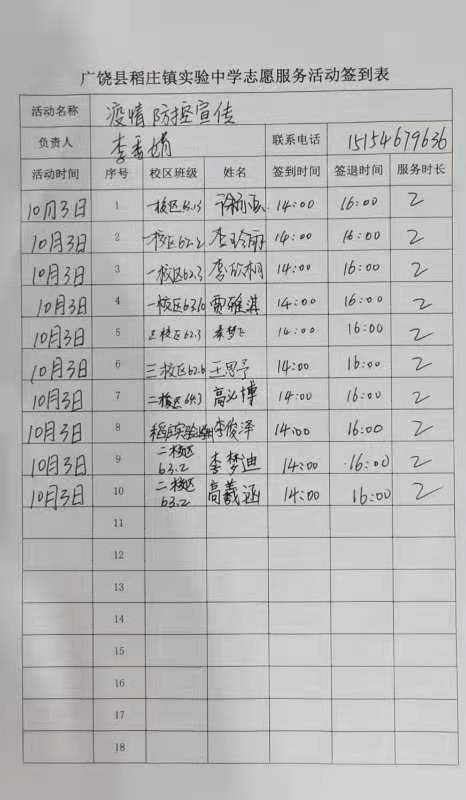 广饶县稻庄镇实验中学志愿服务活动签到表
活动名称 疫情防控宣传
负责人 李秀娟 联系电话 15154679636
活动时间 序号 校区班级 姓名 签到时间 签退时间 服务时长
10月3日 1 一校区 14:00 16:00 2
10月3日 2 一校区62.2 李玲丽 14:00 16:00 2
10月3日 3 一校区62.3 李欣桐 14:00 16:00 2
10月3日 4 一校区63.10 贾雅淇 14:00 16:00 2
10月3日 5 三校区62.3 秦梦飞 14:00 16:00 2
10月3日 6 三校区62.6 王思予 14:00 16:00 2
10月3日 7 二校区64.3 高必博 14:00 16:00 2
10月3日 8 稻庄实验 李俊泽 14:00 16:00 2
10月3日 9 二校区 63.2 李梦迪 14:00 16:00 2
10月3日 10 二校区 63.2 高羲涵 14:00 16:00 2
11
12
13
14
15
16
17
18